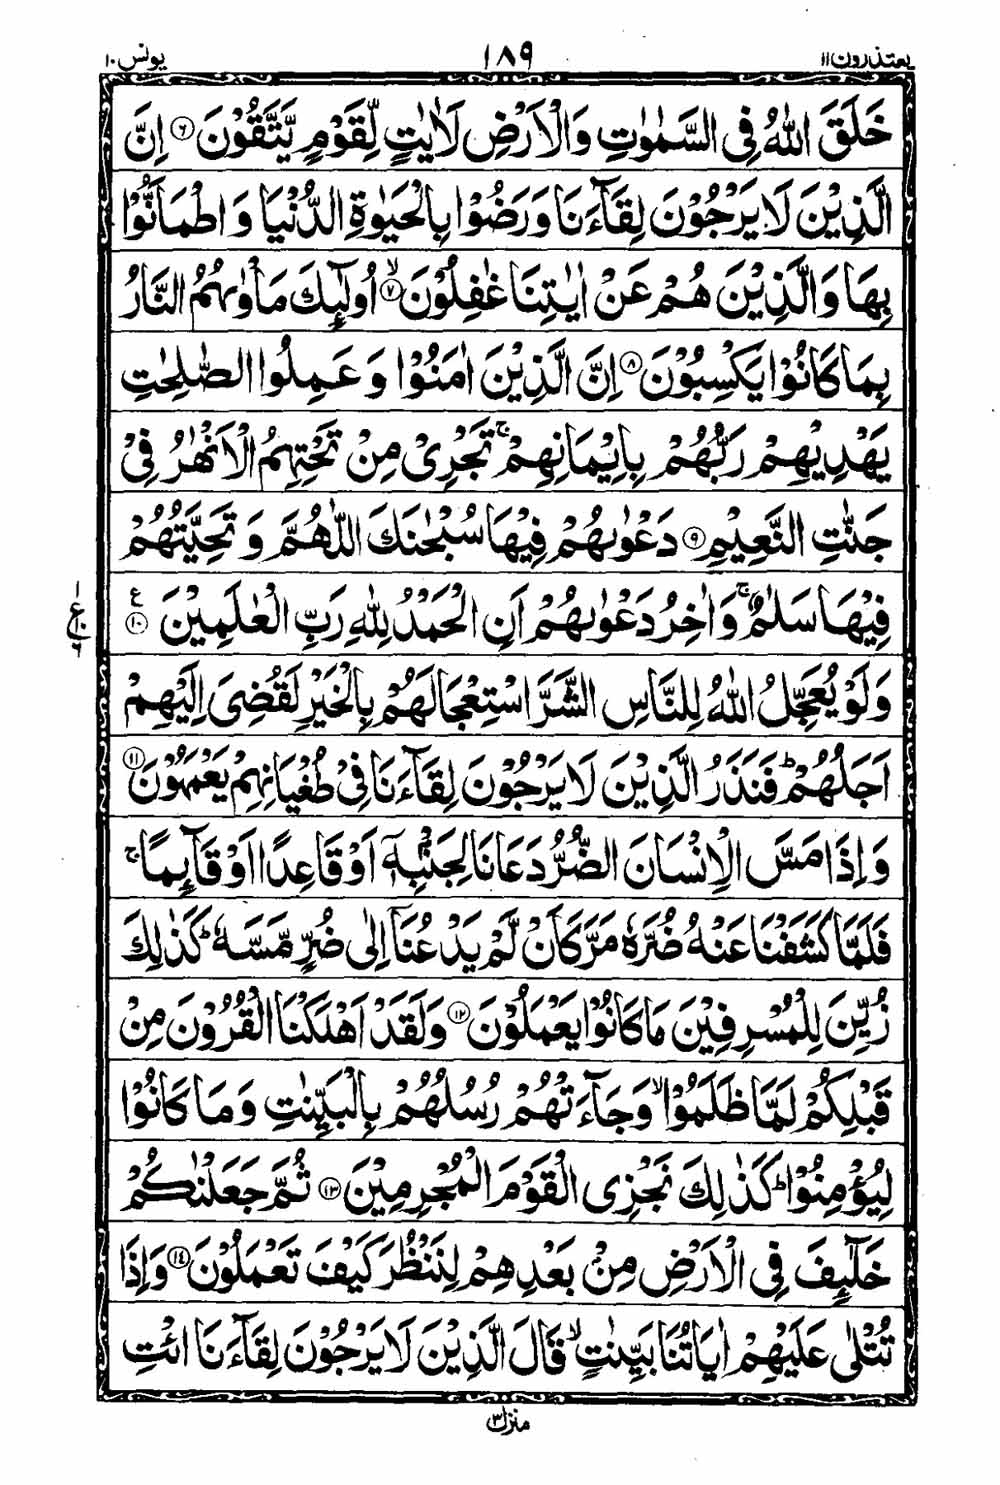 يعتذرون ١١ ١٨٩ يونس ١٠
خَلَقَ اللّٰهُ فِى السَّمٰوٰتِ وَالْاَرْضِ لَاٰيٰتٍ لِّقَوْمٍ يَّتَّقُوْنَ ۝٦ اِنَّ
الَّذِيْنَ لَا يَرْجُوْنَ لِقَآءَنَا وَرَضُوْا بِالْحَيٰوةِ الدُّنْيَا وَاطْمَاَنُّوْا
بِهَا وَالَّذِيْنَ هُمْ عَنْ اٰيٰتِنَا غٰفِلُوْنَ ۝٧ۙ اُولٰٓئِكَ مَاْوٰىهُمُ النَّارُ
بِمَا كَانُوْا يَكْسِبُوْنَ ۝٨ اِنَّ الَّذِيْنَ اٰمَنُوْا وَعَمِلُوا الصّٰلِحٰتِ
يَهْدِيْهِمْ رَبُّهُمْ بِاِيْمَانِهِمْ ۚ تَجْرِىْ مِنْ تَحْتِهِمُ الْاَنْهٰرُ فِىْ
جَنّٰتِ النَّعِيْمِ ۝٩ دَعْوٰىهُمْ فِيْهَا سُبْحٰنَكَ اللّٰهُمَّ وَتَحِيَّتُهُمْ
فِيْهَا سَلٰمٌ ۚ وَاٰخِرُ دَعْوٰىهُمْ اَنِ الْحَمْدُ لِلّٰهِ رَبِّ الْعٰلَمِيْنَ ۝١٠ ع
١ ع ١٠ ٦
وَلَوْ يُعَجِّلُ اللّٰهُ لِلنَّاسِ الشَّرَّ اسْتِعْجَالَهُمْ بِالْخَيْرِ لَقُضِىَ اِلَيْهِمْ
اَجَلُهُمْ ؕ فَنَذَرُ الَّذِيْنَ لَا يَرْجُوْنَ لِقَآءَنَا فِىْ طُغْيَانِهِمْ يَعْمَهُوْنَ ۝١١
وَاِذَا مَسَّ الْاِنْسَانَ الضُّرُّ دَعَانَا لِجَنْۢبِهٖۤ اَوْ قَاعِدًا اَوْ قَآئِمًا ۚ
فَلَمَّا كَشَفْنَا عَنْهُ ضُرَّهٗ مَرَّ كَاَنْ لَّمْ يَدْعُنَاۤ اِلٰى ضُرٍّ مَّسَّهٗ ؕ كَذٰلِكَ
زُيِّنَ لِلْمُسْرِفِيْنَ مَا كَانُوْا يَعْمَلُوْنَ ۝١٢ وَلَقَدْ اَهْلَكْنَا الْقُرُوْنَ مِنْ
قَبْلِكُمْ لَمَّا ظَلَمُوْا ۙ وَجَآءَتْهُمْ رُسُلُهُمْ بِالْبَيِّنٰتِ وَمَا كَانُوْا
لِيُؤْمِنُوْا ؕ كَذٰلِكَ نَجْزِى الْقَوْمَ الْمُجْرِمِيْنَ ۝١٣ ثُمَّ جَعَلْنٰكُمْ
خَلٰٓئِفَ فِى الْاَرْضِ مِنْۢ بَعْدِهِمْ لِنَنْظُرَ كَيْفَ تَعْمَلُوْنَ ۝١٤ وَاِذَا
تُتْلٰى عَلَيْهِمْ اٰيَاتُنَا بَيِّنٰتٍ ۙ قَالَ الَّذِيْنَ لَا يَرْجُوْنَ لِقَآءَنَا ائْتِ
منزل ٣